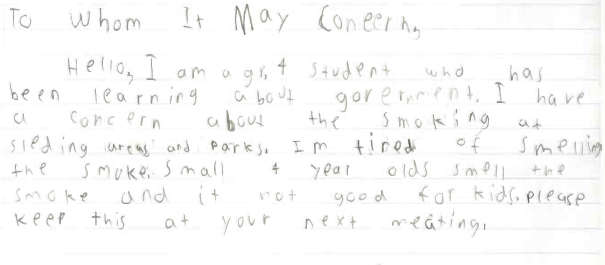 To Whom It May Concern,
Hello, I am a gr, 4 student who has
been learning about government. I have
a concern about the smoking at
sleding areas and parks. Im tired of smelling
the smoke. Small 4 year olds smell the
smoke and it not good for kids. please
keep this at your next meating.